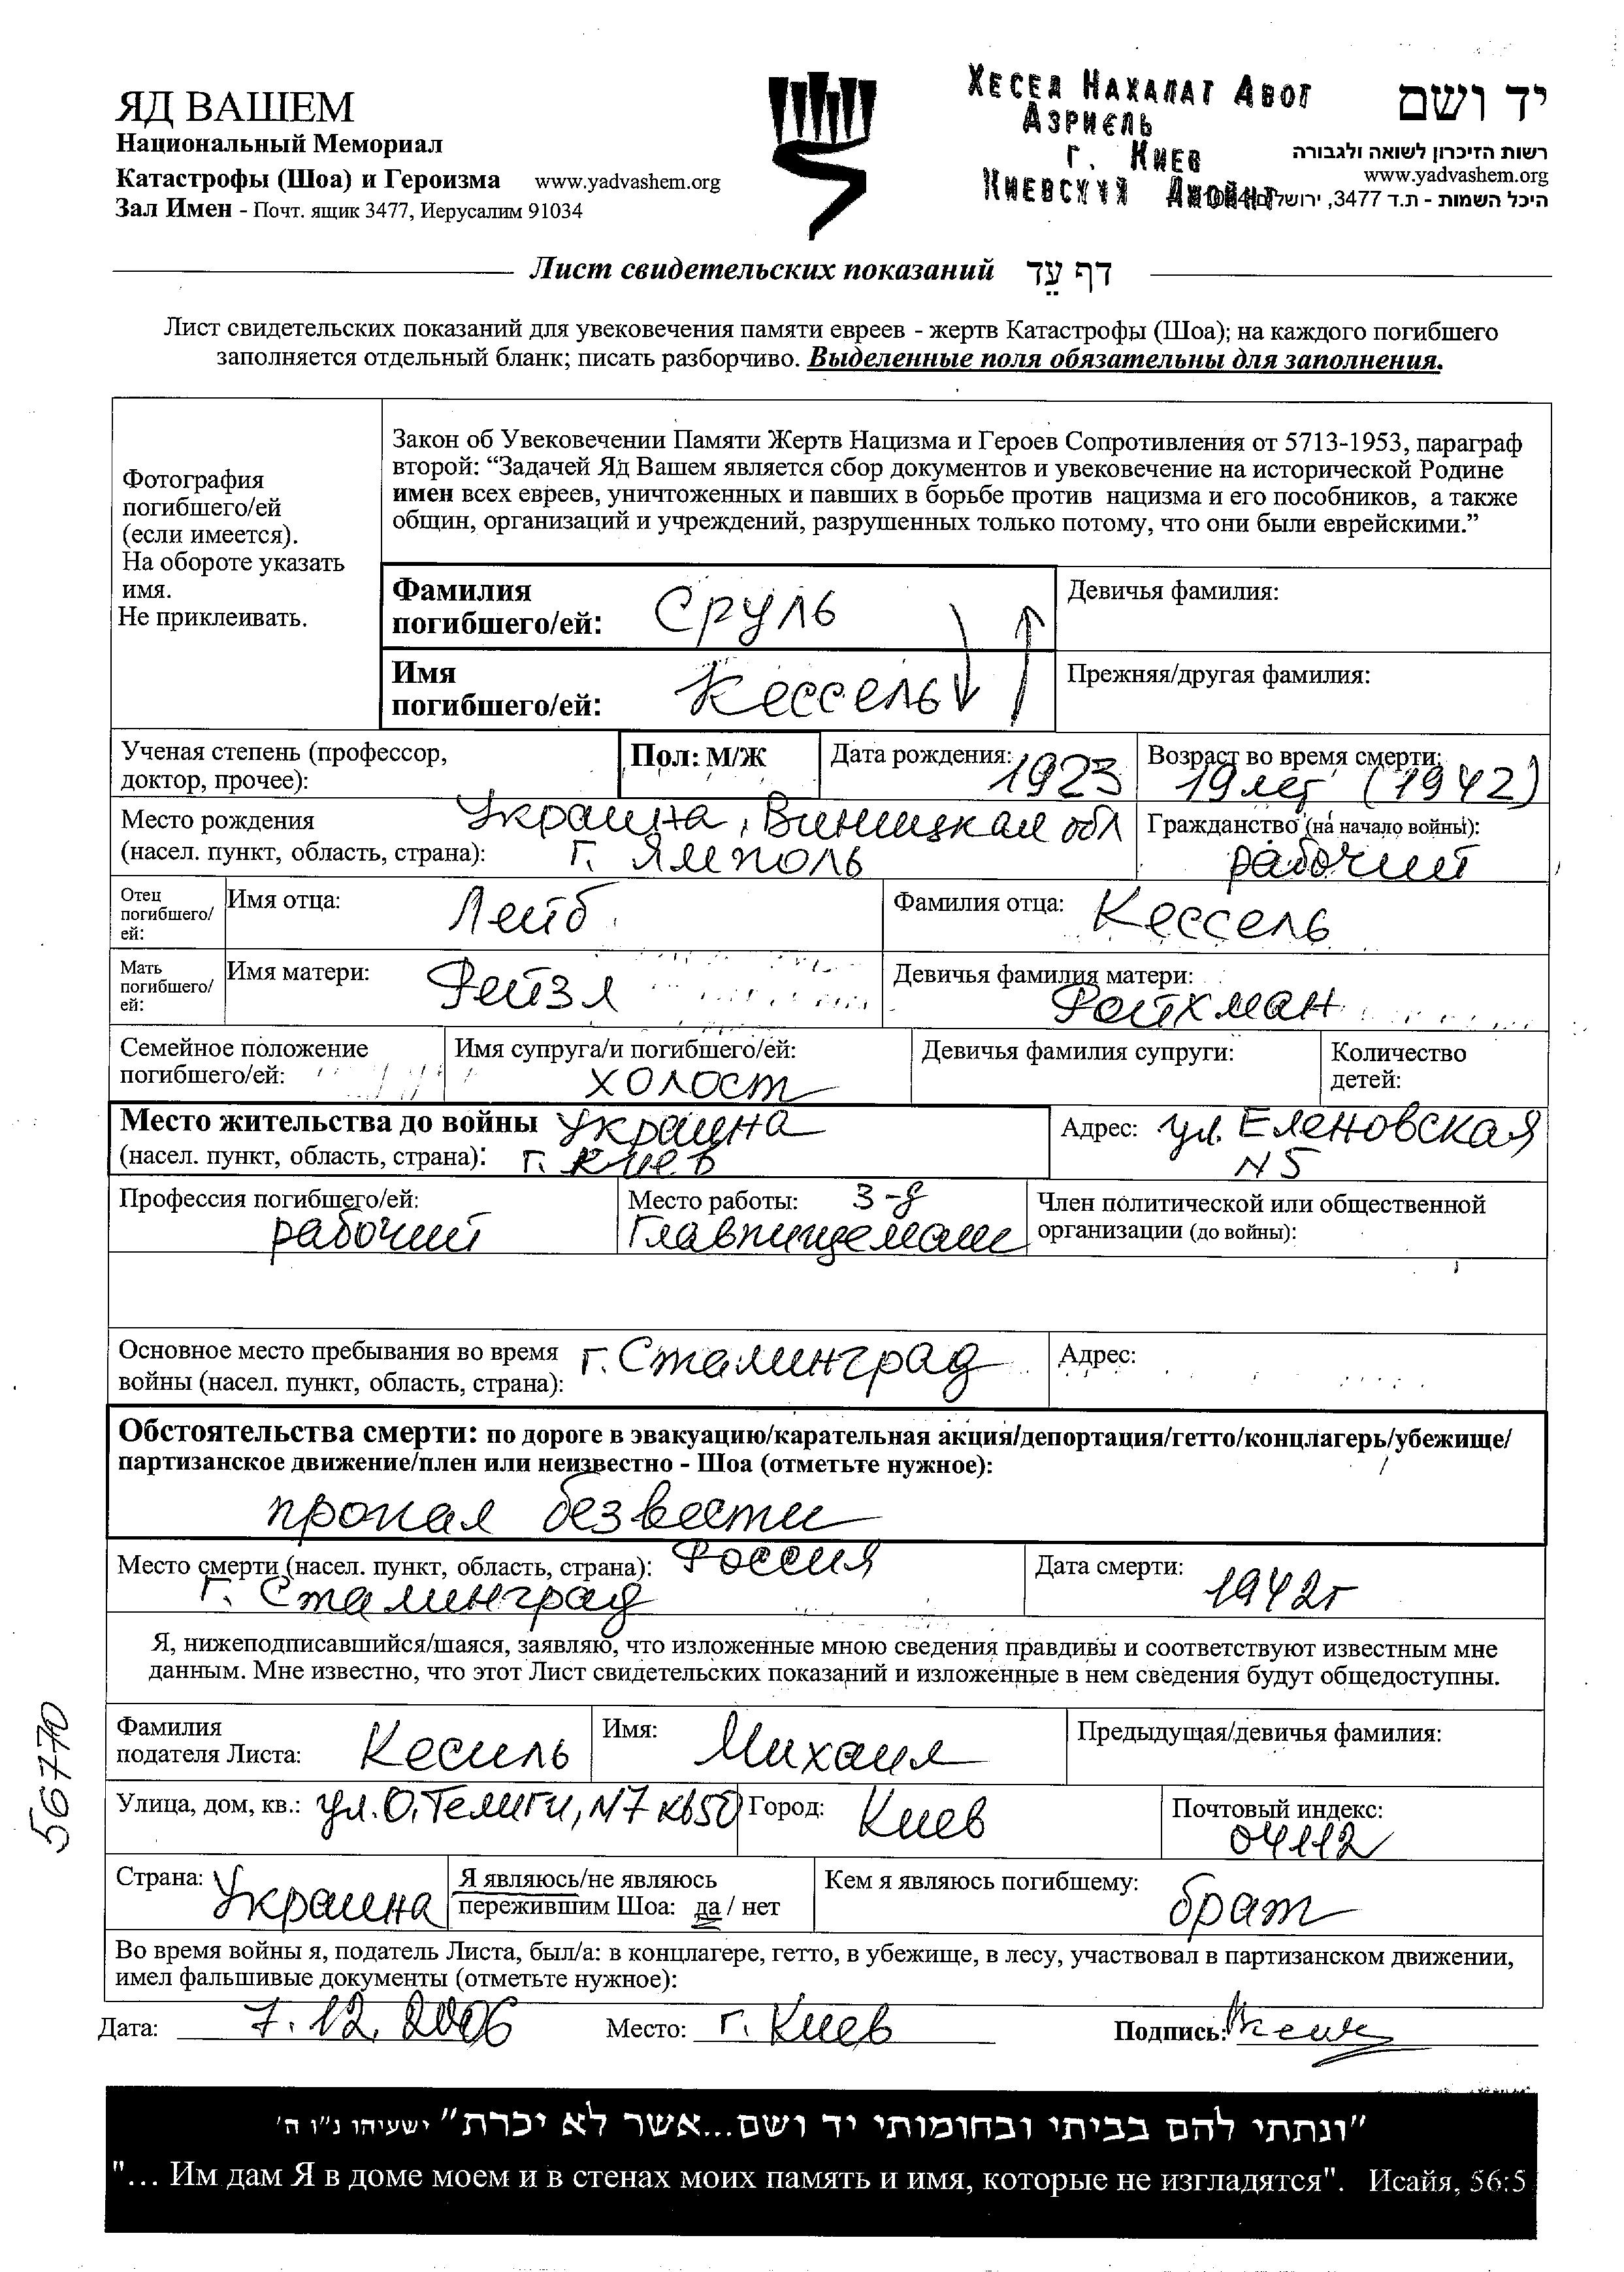 ЯД ВАШЕМ
Национальный Мемориал
Катастрофы (Шоа) и Героизма www.yadvashem.org
Зал Имен - Почт. ящик 3477, Иерусалим 91034
Хесед Нахалат Авот
Азриель
г. Киев
Киевский Джойнт
יד ושם
רשות הזיכרון לשואה ולגבורה
www.yadvashem.org
היכל השמות - ת.ד 3477, ירושלים
Лист свидетельских показаний דף עֵד
Лист свидетельских показаний для увековечения памяти евреев - жертв Катастрофы (Шоа); на каждого погибшего
заполняется отдельный бланк; писать разборчиво. Выделенные поля обязательны для заполнения.
Фотография
погибшего/ей
(если имеется).
На обороте указать
имя.
Не приклеивать.
Закон об Увековечении Памяти Жертв Нацизма и Героев Сопротивления от 5713-1953, параграф
второй: “Задачей Яд Вашем является сбор документов и увековечение на исторической Родине
имен всех евреев, уничтоженных и павших в борьбе против нацизма и его пособников, а также
общин, организаций и учреждений, разрушенных только потому, что они были еврейскими.”
Фамилия
погибшего/ей: Сруль
Девичья фамилия:
Имя
погибшего/ей: Кессель
Прежняя/другая фамилия:
Ученая степень (профессор,
доктор, прочее):
Пол: М/Ж
Дата рождения: 1923
Возраст во время смерти:
19 лет (1942)
Место рождения Украина, Винницкая обл
(насел. пункт, область, страна): г. Ямполь
Гражданство (на начало войны):
рабочий
Отец
погибшего/
ей:
Имя отца: Лейб
Фамилия отца: Кессель
Мать
погибшего/
ей:
Имя матери: Фейзл
Девичья фамилия матери:
Ройхман
Семейное положение
погибшего/ей:
Имя супруга/и погибшего/ей:
холост
Девичья фамилия супруги:
Количество
детей:
Место жительства до войны Украина
(насел. пункт, область, страна): г. Киев
Адрес: ул. Еленовская
N 5
Профессия погибшего/ей:
рабочий
Место работы: з-д
Главпищемаш
Член политической или общественной
организации (до войны):
Основное место пребывания во время г. Сталинград
войны (насел. пункт, область, страна):
Адрес:
Обстоятельства смерти: по дороге в эвакуацию/карательная акция/депортация/гетто/концлагерь/убежище/
партизанское движение/плен или неизвестно - Шоа (отметьте нужное):
пропал без вести
Место смерти (насел. пункт, область, страна): Россия
г. Сталинград
Дата смерти:
1942г
Я, нижеподписавшийся/шаяся, заявляю, что изложенные мною сведения правдивы и соответствуют известным мне
данным. Мне известно, что этот Лист свидетельских показаний и изложенные в нем сведения будут общедоступны.
56770
Фамилия
подателя Листа: Кесиль
Имя: Михаил
Предыдущая/девичья фамилия:
Улица, дом, кв.: ул. О. Телиги, N7 кв50
Город: Киев
Почтовый индекс:
04112
Страна: Украина
Я являюсь/не являюсь
пережившим Шоа: да / нет
Кем я являюсь погибшему:
брат
Во время войны я, податель Листа, был/а: в концлагере, гетто, в убежище, в лесу, участвовал в партизанском движении,
имел фальшивые документы (отметьте нужное):
Дата: 7.12.2006 Место: г. Киев Подпись:
"ונתתי להם בביתי ובחומותי יד ושם...אשר לא יכרת" ישעיהו נ"ו ה'
"... Им дам Я в доме моем и в стенах моих память и имя, которые не изгладятся". Исайя, 56:5